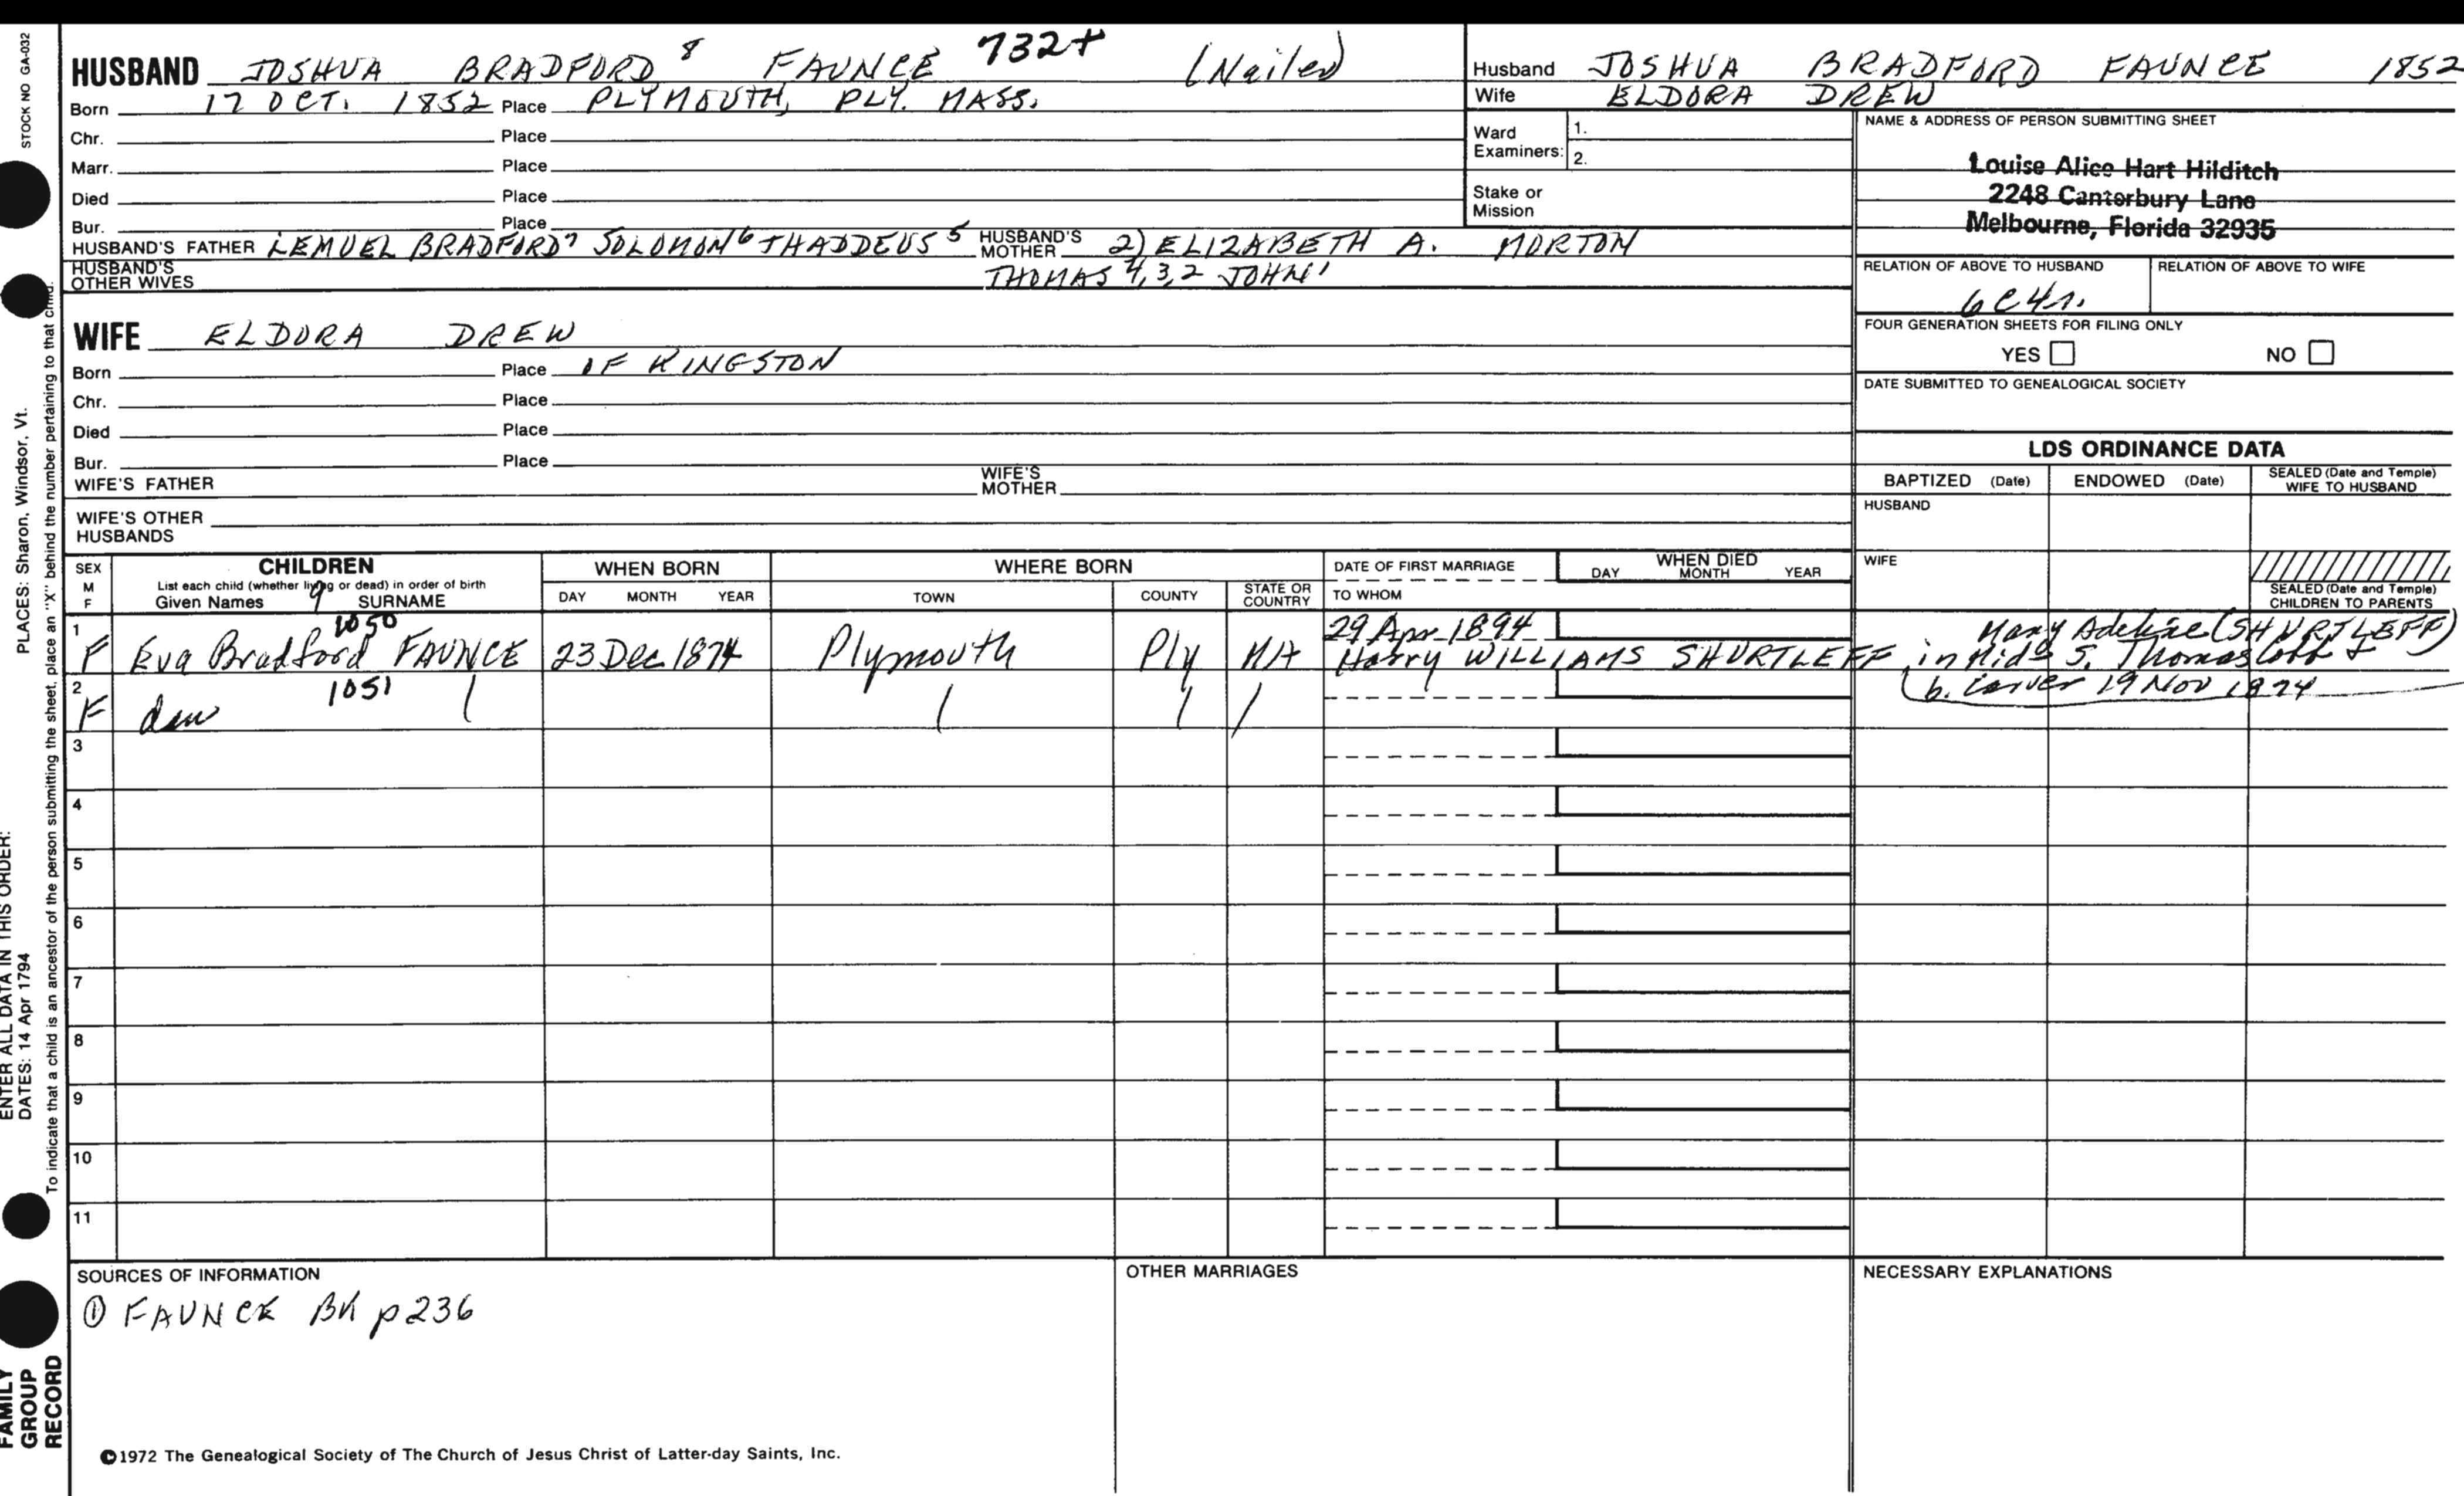 STOCK NO GA-032
PLACES: Sharon, Windsor, Vt.
ENTER ALL DATA IN THIS ORDER:
DATES: 14 Apr 1794
To indicate that a child is an ancestor of the person submitting the sheet, place an "X" behind the number pertaining to that child.
FAMILY GROUP RECORD
HUSBAND JOSHUA BRADFORD 8 FAUNCE 732+ (Nailer)
Born 17 OCT. 1852 Place PLYMOUTH, PLY. MASS.
Chr. Place
Marr. Place
Died Place
Bur. Place
HUSBAND'S FATHER LEMUEL BRADFORD 7 SOLOMON 6 THADDEUS 5 HUSBAND'S MOTHER 2) ELIZABETH A. MORTON
HUSBAND'S OTHER WIVES THOMAS 4,3,2 JOHN 1
WIFE ELDORA DREW
Born Place OF KINGSTON
Chr. Place
Died Place
Bur. Place
WIFE'S FATHER WIFE'S MOTHER
WIFE'S OTHER HUSBANDS
Husband JOSHUA BRADFORD FAUNCE 1852
Wife ELDORA DREW
Ward Examiners: 1.
2.
Stake or Mission
NAME & ADDRESS OF PERSON SUBMITTING SHEET
Louise Alice Hart Hilditch
2248 Canterbury Lane
Melbourne, Florida 32935
RELATION OF ABOVE TO HUSBAND RELATION OF ABOVE TO WIFE
6C4r.
FOUR GENERATION SHEETS FOR FILING ONLY
YES NO
DATE SUBMITTED TO GENEALOGICAL SOCIETY
LDS ORDINANCE DATA
BAPTIZED (Date) ENDOWED (Date) SEALED (Date and Temple) WIFE TO HUSBAND
HUSBAND
WIFE
SEALED (Date and Temple) CHILDREN TO PARENTS
SEX M F CHILDREN WHEN BORN WHERE BORN DATE OF FIRST MARRIAGE WHEN DIED
List each child (whether living or dead) in order of birth
Given Names 9 SURNAME DAY MONTH YEAR TOWN COUNTY STATE OR COUNTRY TO WHOM DAY MONTH YEAR
1 1050 29 Apr 1894 Mary Adeline (SHURTLEFF)
F Eva Bradford FAUNCE 23 Dec 1874 Plymouth Ply MA Harry WILLIAMS SHURTLEFF, in Mid S. Thomas Cobb &
2 1051 b. Carver 19 Nov 1874
F dau
3
4
5
6
7
8
9
10
11
SOURCES OF INFORMATION OTHER MARRIAGES NECESSARY EXPLANATIONS
① FAUNCE BK p236
©1972 The Genealogical Society of The Church of Jesus Christ of Latter-day Saints, Inc.